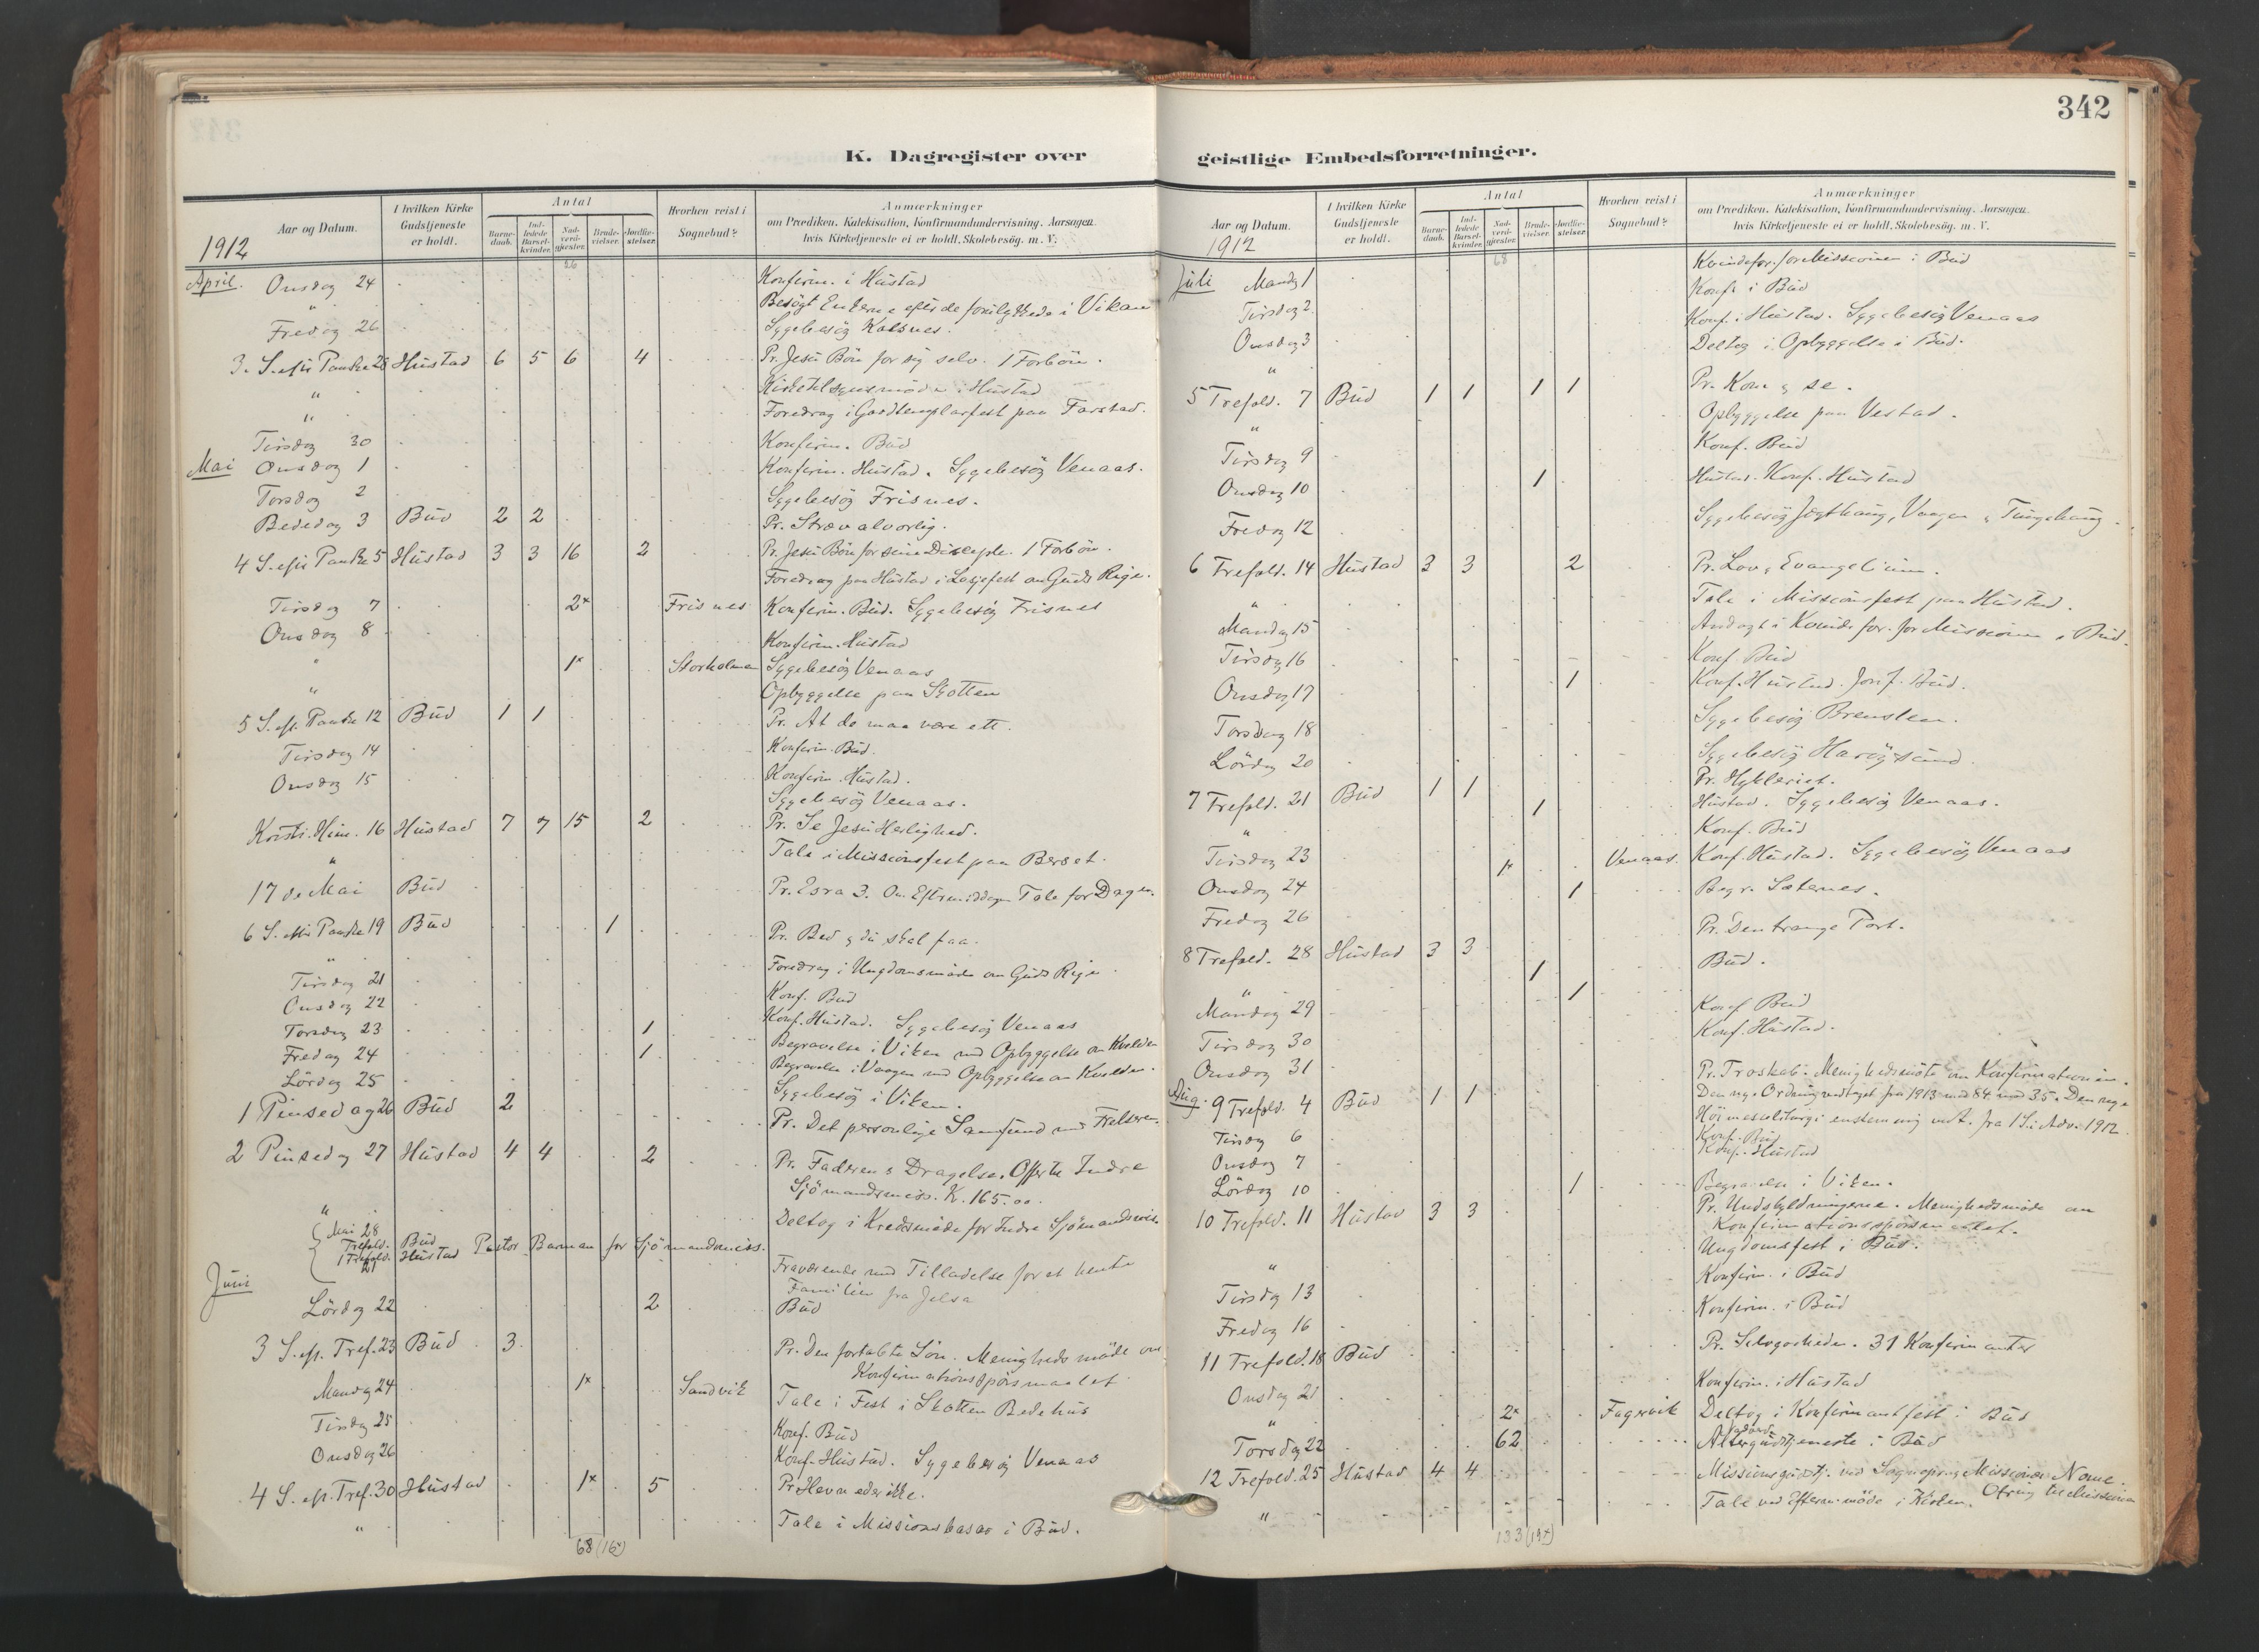 342
K. Dagregister over
geistlige Embedsforretninger.
Aar og Datum.
I hvilken Kirke Gudstjeneste er holdt.
Antal
Barne-daab.
Ind-ledede Barsel-kvinder.
Nad-verd-gjester.
Brude-vielser.
Jordfæ-stelser.
Hvorhen reist i Sognebud?
Anmærkninger
om Prædiken, Katekisation, Konfirmandundervisning, Aarsagen,
hvis Kirketjeneste ei er holdt, Skolebesøg, m. V.
1912
26
April. Onsdag 24 Konfirm. i Hustad
" Besøgt Enkerne efter de forulykkede i Vikan
Fredag 26 Sygebesög Kalsnes.
3. S. efter Paaske 28 Hustad 6 5 6 4 Pr. Jesu Bön for sig selv. 1 Forbön.
" i Hustad
" Foredrag i Goodtemplarfest paa Farstad.
Tirsdag 30 Konfirm. Bud
Mai Onsdag 1 Konfirm. Hustad. Sygebesög Venaas.
Torsdag 2 Sygebesög Frisnes.
Bededag 3 Bud 2 2 Pr. Stræv alvorlig.
4 S. efter Paaske 5 Hustad 3 3 16 2 Pr. Jesu Bön for sine Disciple. 1 Forbön.
Foredrag paa Hustad i Losjefest om Guds Rige.
Tirsdag 7 2x Frisnes Konfirm. Bud. Sygebesög Frisnes
Onsdag 8 Konfirm. Hustad
" 1x Storholmen Sygebesög Venaas
" Opbyggelse paa Skotten
5 S. eft. Paaske 12 Bud 1 1 Pr. At de maa være ett.
Tirsdag 14 Konfirm. Bud.
Onsdag 15 Konfirm. Hustad.
Sygebesög Venaas.
Kristi. Him. 16 Hustad 7 7 15 2 Pr. Se Jesu Herlighed.
" Tale i Missionsfest paa Berset.
17 de Mai Bud Pr. Esra 3. Om Eftermiddagen Tale for Dagen.
6 S. efter Paaske 19 Bud 1 Pr. Bed og du skal faa.
" Foredrag i Ungdomsmöde om Guds Rige.
Tirsdag 21 Konf. Bud
Onsdag 22 Konf. Hustad. Sygebesög Venaas
Torsdag 23 1 Begravelse i Viken med Opbyggelse om Kvelden
Fredag 24 1 Begravelse i Vaagen med Opbyggelse om Kvelden.
Lördag 25 Sygebesög i Viken.
1 Pinsedag 26 Bud 2 Pr. Det personlige Samfund med Frelseren.
2 Pinsedag 27 Hustad 4 4 2 Pr. Faderens Dragelse. Offer til Indre
Sjömandsmiss. K. 165.00.
" Deltog i Kredsmöde for Indre Sjömandsmis.
Mai 28
Trefold. Bud Pastor Barman for Sjömandsmiss.
1 Trefold. Hustad
Juni Fraværende med Tilladelse for at hente
Familien fra Jelsa
Lördag 22 2 Bud
3 S. eft. Tref. 23 Bud 3 Pr. Den fortabte Sön. Menighedsmöde om
Konfirmationsspörsmaalet.
Mandag 24 1x Sandvik Tale i Fest i Skotten Bedehus
Tirsdag 25 Konf. Bud
Onsdag 26 Konf. Hustad. Sygebesög Venaas
4 S. eft. Tref. 30 Hustad 1x 5 Pr. Hevn eder ikke.
" Tale i Missionsbasar i Bud.
68 (16x)
Aar og Datum.
I hvilken Kirke Gudstjeneste er holdt.
Antal
Barne-daab.
Ind-ledede Barsel-kvinder.
Nad-verd-gjester.
Brude-vielser.
Jordfæ-stelser.
Hvorhen reist i Sognebud?
Anmærkninger
om Prædiken, Katekisation, Konfirmandundervisning, Aarsagen,
hvis Kirketjeneste ei er holdt, Skolebesøg, m. V.
1912
68
Juli Mandag 1 Kvindefor. for Missionen i Bud
Tirsdag 2 Konf. i Bud
Onsdag 3 Konf. i Hustad. Sygebesög Venaas
" Deltog i Opbyggelse i Bud.
5 Trefold. 7 Bud 1 1 1 1 Pr. Kom og se.
" Opbyggelse paa Vestad.
Tirsdag 9 Konf. Bud
Onsdag 10 1 Hustad. Konf. Hustad
Fredag 12 Sygebesög Jægthaug, Vaagen og Tungehaug.
6 Trefold. 14 Hustad 3 3 2 Pr. Lov og Evangelium.
" Tale i Missionsfest paa Hustad.
Mandag 15 Andagt i Kvindefor. for Missionen i Bud.
Tirsdag 16 Konf. Bud
Onsdag 17 1 Konf. Hustad. Jordf. Bud.
Torsdag 18 Sygebesög Brensten.
Lördag 20 Sygebesög Haröysund.
7 Trefold. 21 Bud 1 1 Pr. Hykleriet.
" 1 Hustad. Sygebesög Venaas.
Tirsdag 23 Konf. Bud
Onsdag 24 1x Venaas. Konf. Hustad. Sygebesög Venaas
Fredag 26 1 Begr. Sæternes.
8 Trefold. 28 Hustad 3 3 Pr. Den trange Port.
" 1 Bud.
Mandag 29 1
Tirsdag 30 Konf Bud
Onsdag 31 Konf. Hustad.
Aug. 9 Trefold. 4 Bud 1 1 Pr. Troskab. Menighedsmöte om Konfirmationen.
Den nye Ordning vedtaget fra 1913 med 84 mod 35. Den nye
Höimesseliturgi enstemmig vedt. fra 1 S. i Adv. 1912.
Tirsdag 6 Konf. Bud
Onsdag 7 Konf. Hustad
Lördag 10 1 Begravelse i Viken.
10 Trefold. 11 Hustad 3 3 Pr. Undskyldningerne. Menighedsmöde om
Konfirmationsspörsmaalet.
" Ungdomsfest i Bud.
Tirsdag 13 Konfirm. i Bud
Fredag 16 Konfirm. i Bud
11 Trefold. 18 Bud Pr. Selvgodheden. 31 Konfirmanter
Onsdag 21 Konfirm. i Hustad
" 2x Fagervik Deltog i Konfirmantfest i Bud
Torsdag 22 62 Altergudstjeneste i Bud
12 Trefold. 25 Hustad 4 4 Missionsgudstj. ved Sogneprest og Missionær Nome.
Ofring til Missionen
" Tale ved Efterm. möde i Kirken.
133 (19x)